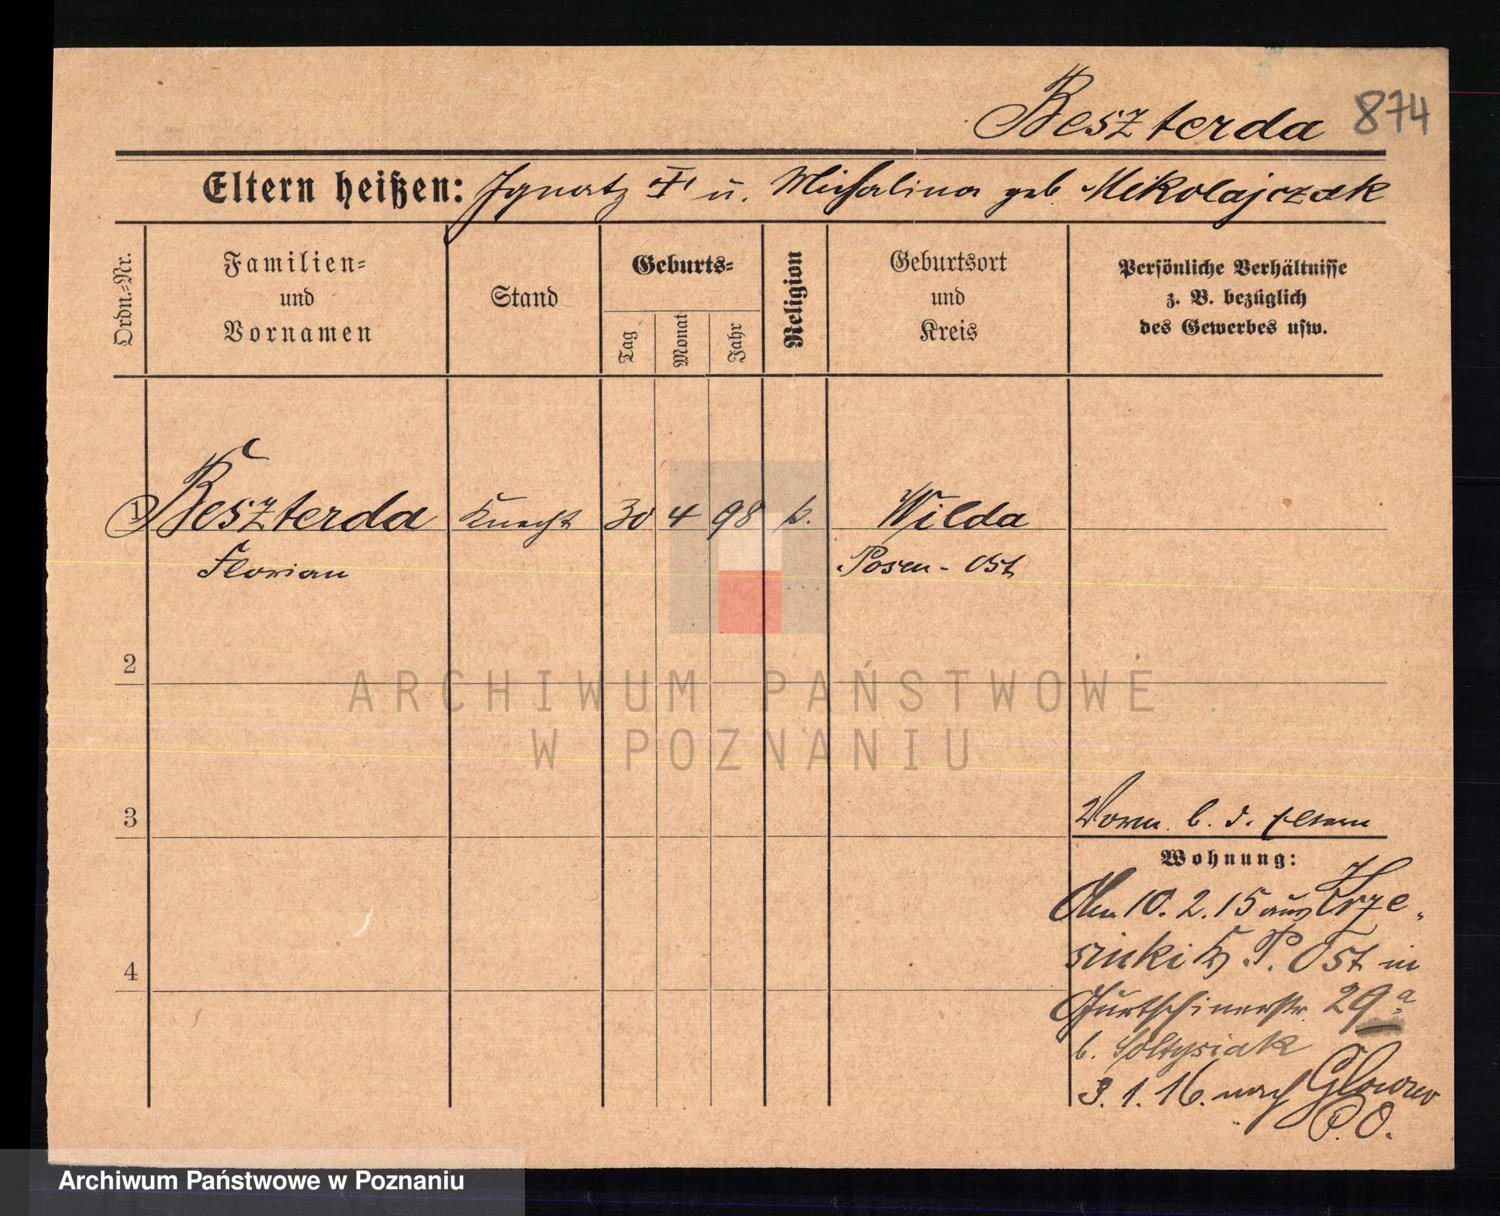 Beszterda 874
Eltern heißen: Ignatz † u. Michalina geb. Mikolajczak
Ordn.-Nr.
Familien-
und
Vornamen
Stand
Geburts-
Tag
Monat
Jahr
Religion
Geburtsort
und
Kreis
Persönliche Verhältnisse
z. B. bezüglich
des Gewerbes usw.
1 Beszterda Knecht 30 4 98 k. Wilda
Florian Posen-Ost
2
ARCHIWUM PAŃSTWOWE
W POZNANIU
3
Vorm. b. d. Eltern
Wohnung:
Am 10. 2. 15 aus Krze-
sinki P. Ost in
4
Gurtschinerstr. 29a
b. Soltysiak
3. 1. 16. nach Glowno
P. O.
Archiwum Państwowe w Poznaniu